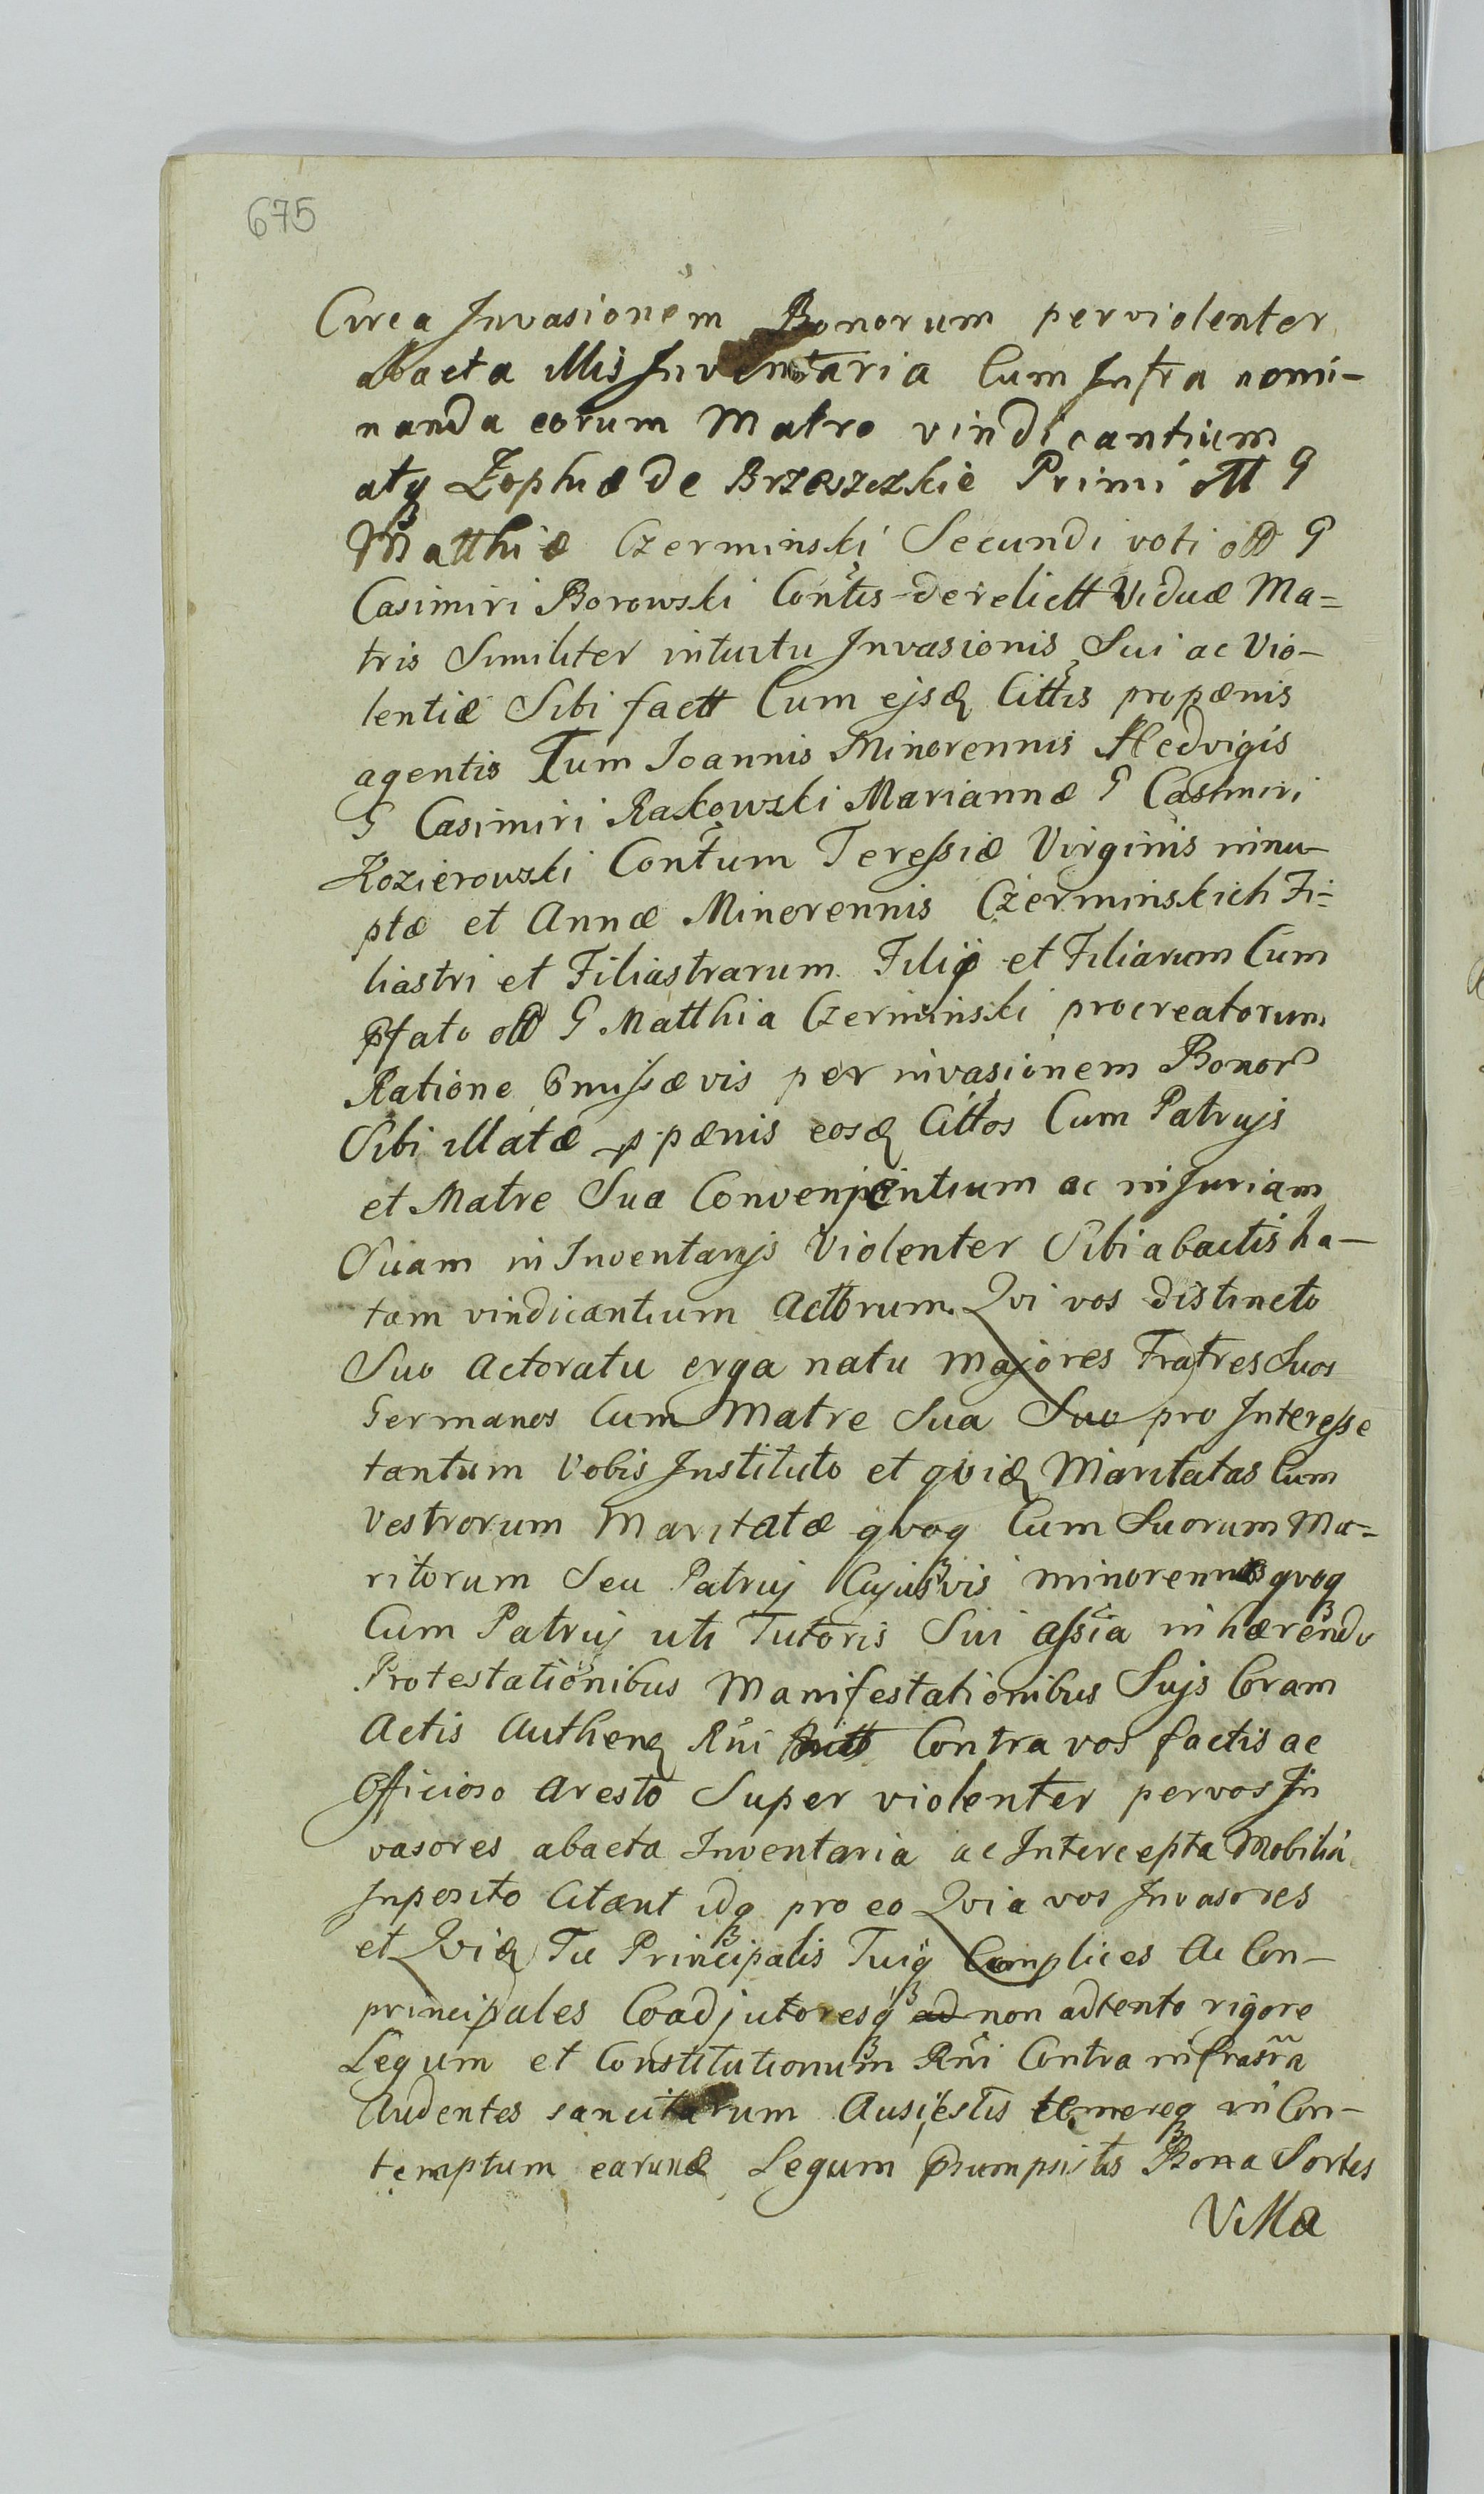 675
Circa Invasionem Bonorum per violenter
abacta illis Inventaria Cum Infra nomi-
nanda eorum Matre vindicantium
atq Zophiæ de Brzeszczkie Primi ott G
Matthiæ Czerminski Secundi voti ott G
Casimiri Borowski Contis derelictt Viduæ Ma=
tris Similiter intuitu Invasionis Sui ac Vio-
lentiæ Sibi factt Cum ejsq Cittis pro pænis
agentis Tum Joannis Minorennis Hedvigis
G Casimiri Rakowski Mariannæ G Casimiri
Kozierowski Contum Teressiæ Virginis innu-
ptæ et Annæ Minorennis Czerminskich Fi=
liastri et Filiastrarum Filij et Filiarum Cum
Pfato ott G Matthia Czerminski procreatorum
Ratione Omissæ vis per invasionem Bonor
Sibi illatæ p pænis eosq Cittos Cum Patrujs
et Matre Sua Convenientium ac injuriam
Suam in Inventarijs Violenter Sibi abactis ha-
tam vindicantium Actorum. Qvi vos distincto
Suo Actoratu erga natu Majores Fratres Suos
Germanos Cum Matre Sua Suo pro Interesse
tantum Vobis Instituto et qviq Maritatas Cum
Vestrorum Maritatæ qvoq Cum Suorum Ma=
ritorum Seu Patruj Cujusvis minorennis qvoq
Cum Patruj uti Tutoris Sui assia inhærendo
Protestationibus Manifestationibus Sujs Coram
Actis Authenq Rni Contra vos factis ac
Officioso Aresto Super violenter per vos In
vasores abacta Inventaria ac Intercepta Mobilia
Inposito Citant idq pro eo Qvia vos Invasores
et Qviq Tu Principalis Tuiq Complices Ac Con-
principales Coadjutoresq ad non adtento rigore
Legum et Constitutionum Rni Contra infrasra
Audentes sancitarum Ausi estis temereq in Con-
temptum earunq Legum Præsumpsistis Bona Sortes
Villa